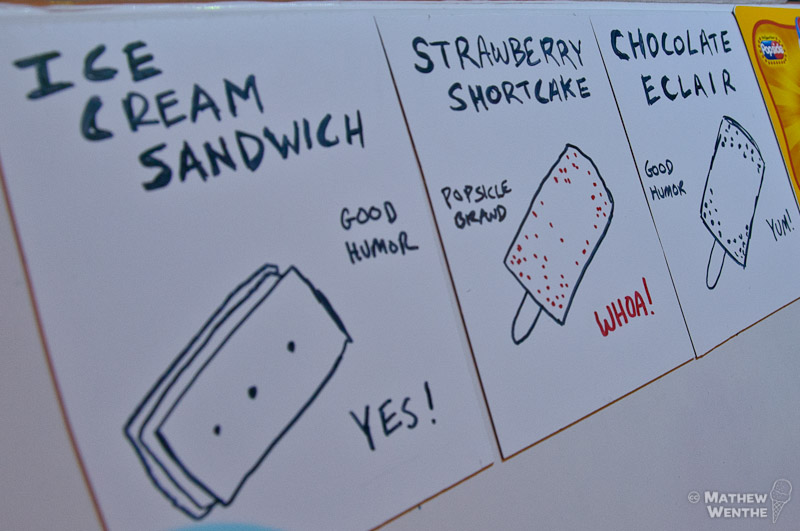 ICE
CREAM
SANDWICH
GOOD
HUMOR
YES!
STRAWBERRY
SHORTCAKE
POPSICLE
BRAND
WHOA!
CHOCOLATE
ECLAIR
GOOD
HUMOR
YUM!
Popsicle
cc MATHEW
WENTHE